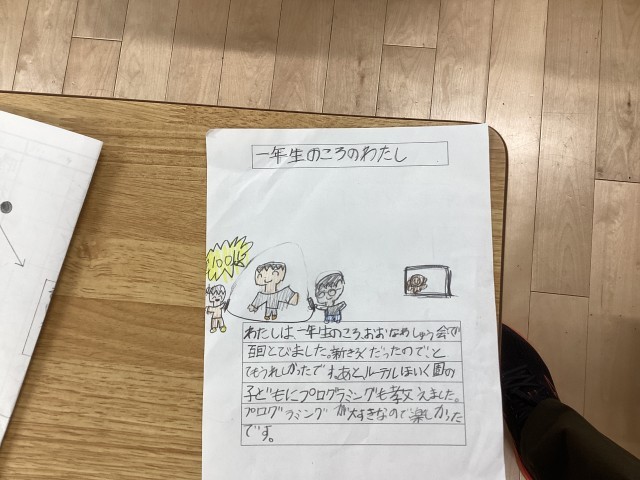 一年生のころのわたし
100回
わたしは、一年生のころ、おおなわしゅう会で
百回とびました。新きろくだったので、と
てもうれしかったです。あと、ルーテルほいく園の
子どもにプログラミングも教えました。
プログラミングが大すきなので楽しかった
です。